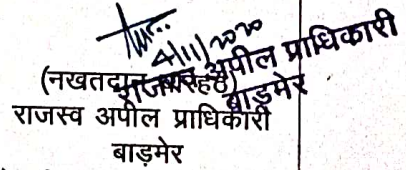 4/11/2020
राजस्व अपील प्राधिकारी
बाड़मेर
(नखतदान बारहठ)
राजस्व अपील प्राधिकारी
बाड़मेर